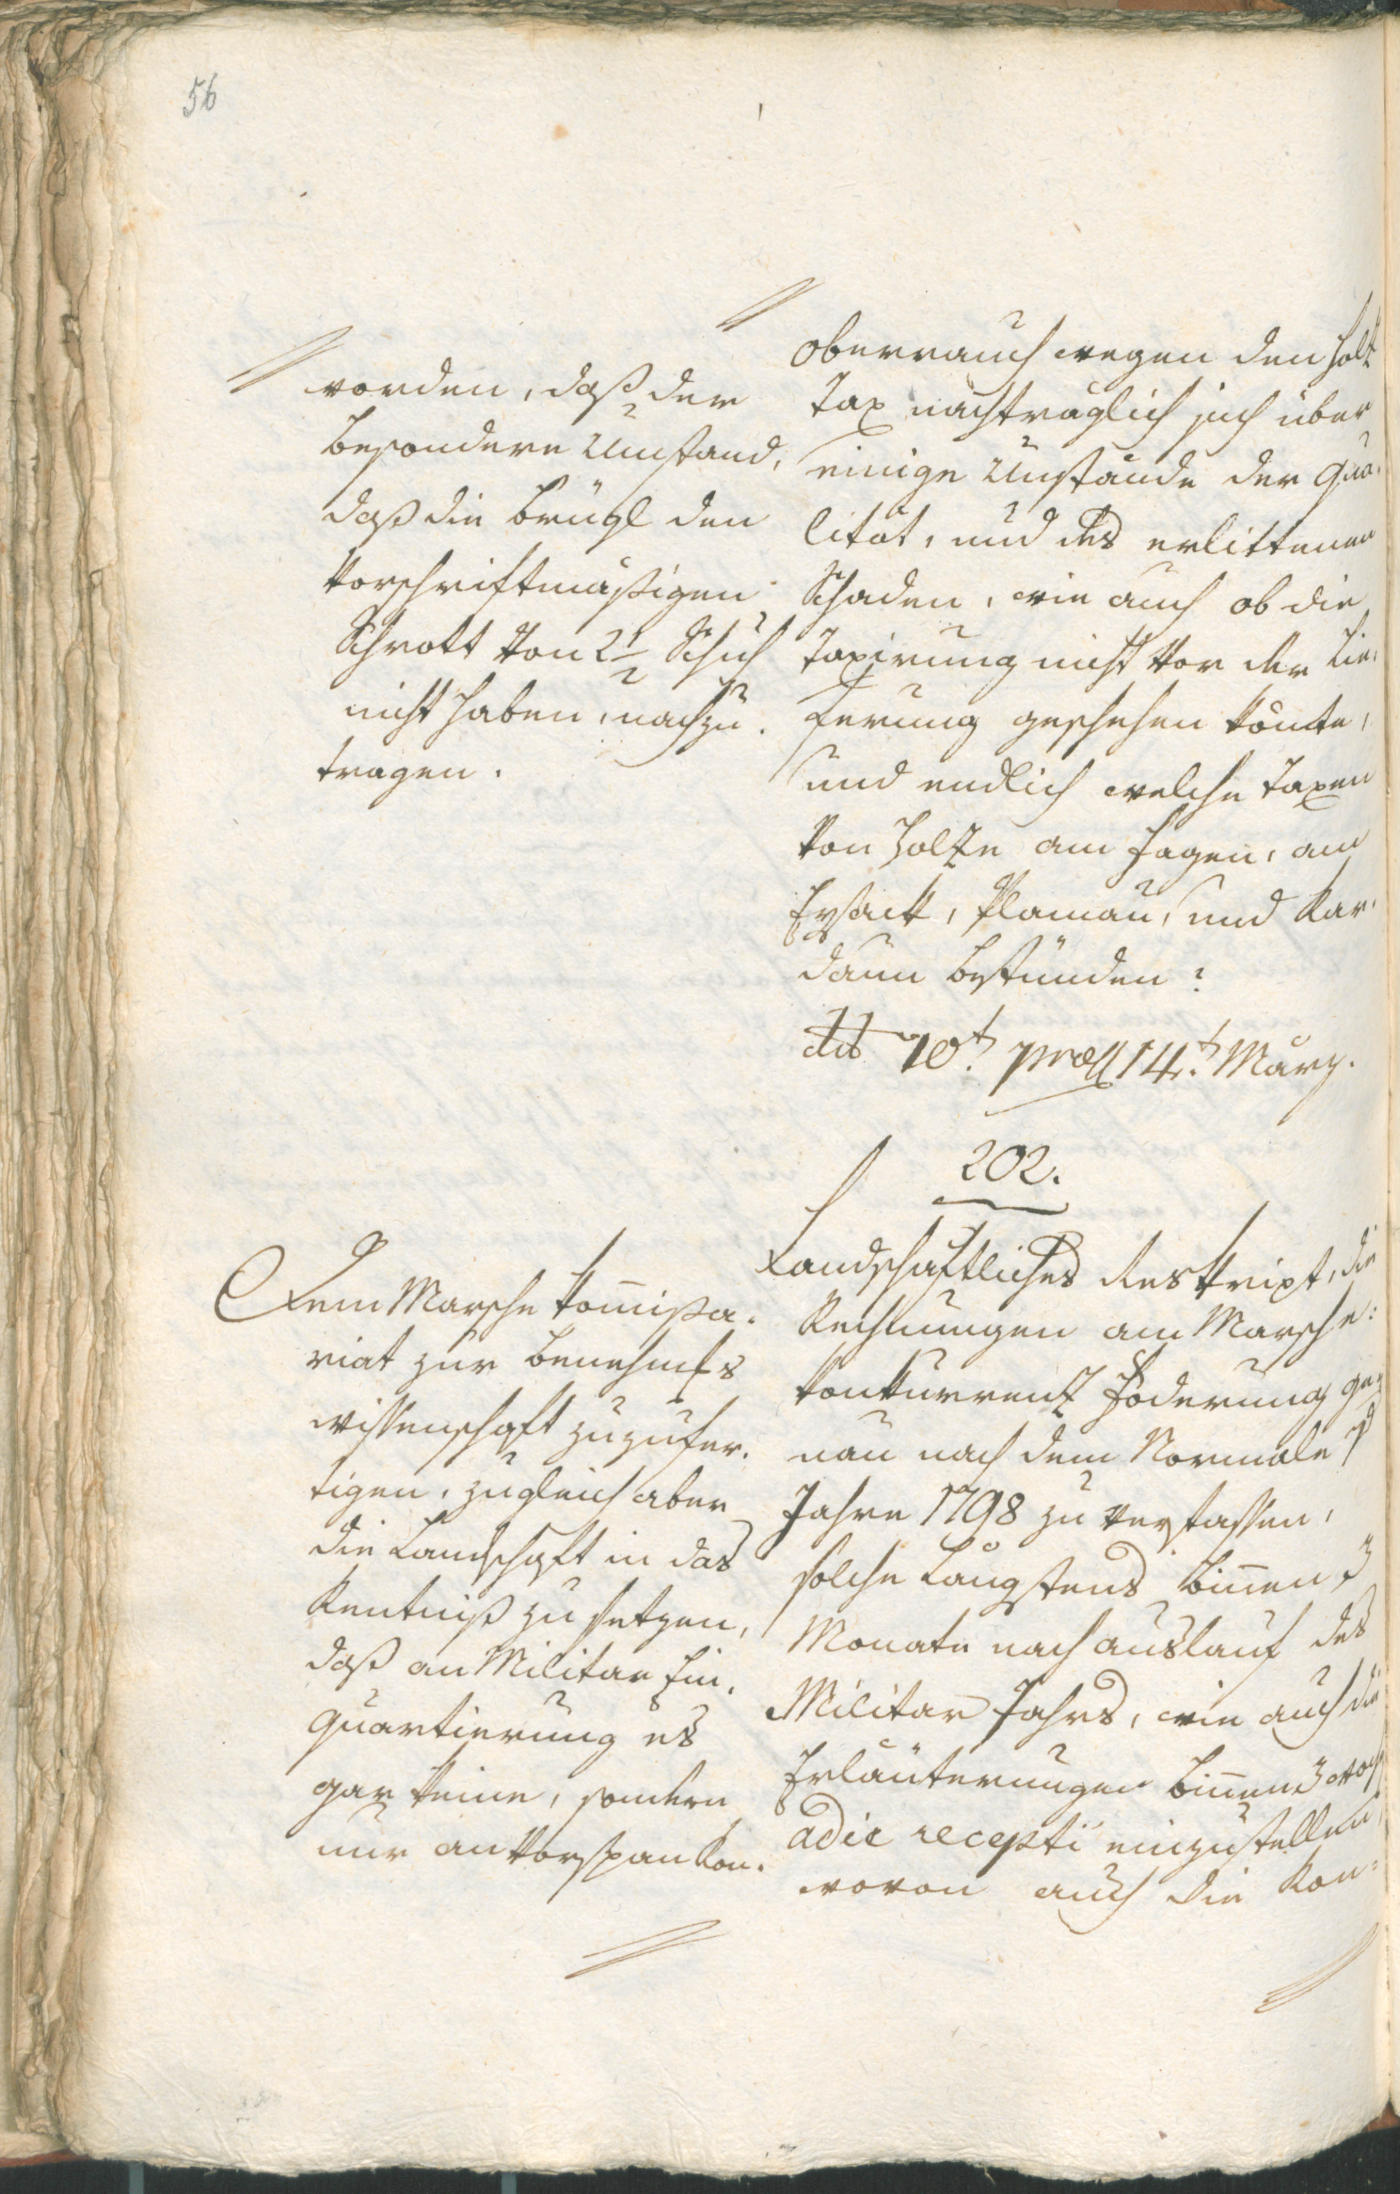 56
worden, daß der
besondere Umstand,
daß die Brügl den
vorschriftmäßigen
Schrott von 2 1/2 Schuh
nicht haben, nachzu.
tragen.
Oberrauch wegen den Holz
Tax nachträglich sich über
einige Umstände der Qua.
lität, und des erlittenen
Schaden, wie auch ob die
Taxirung nicht vor der Lie.
ferung geschehen könnte,
und endlich welche Taxen
von Holze am Hagen, am
Eysack, Plamau, und Kar.
daun bestünden?
dto 10t. präs 14t. März.
202.
Dem Marsche Komißa.
riat zur Benehmens
wissenschaft zuzufer.
tigen, zugleich aber
die Landschaft in das
Kentniß zu setzen,
daß an Militar Ein.
quartierung es
gar keine, sondern
nur an Vorspan Kon.
Landschaftliches Reskript, die
Rechnungen am Marsche:
Konkurrenz Foderung ge:
nau nach dem Normale
Jahre 1798 zu verfassen,
solche Längstens binnen 3
Monate nach auslauf des
Militar Jahrs, wie auch die
Erläuterungen binnen 3 Woch
a die recepti einzustellen,
wovon auch die Kon=